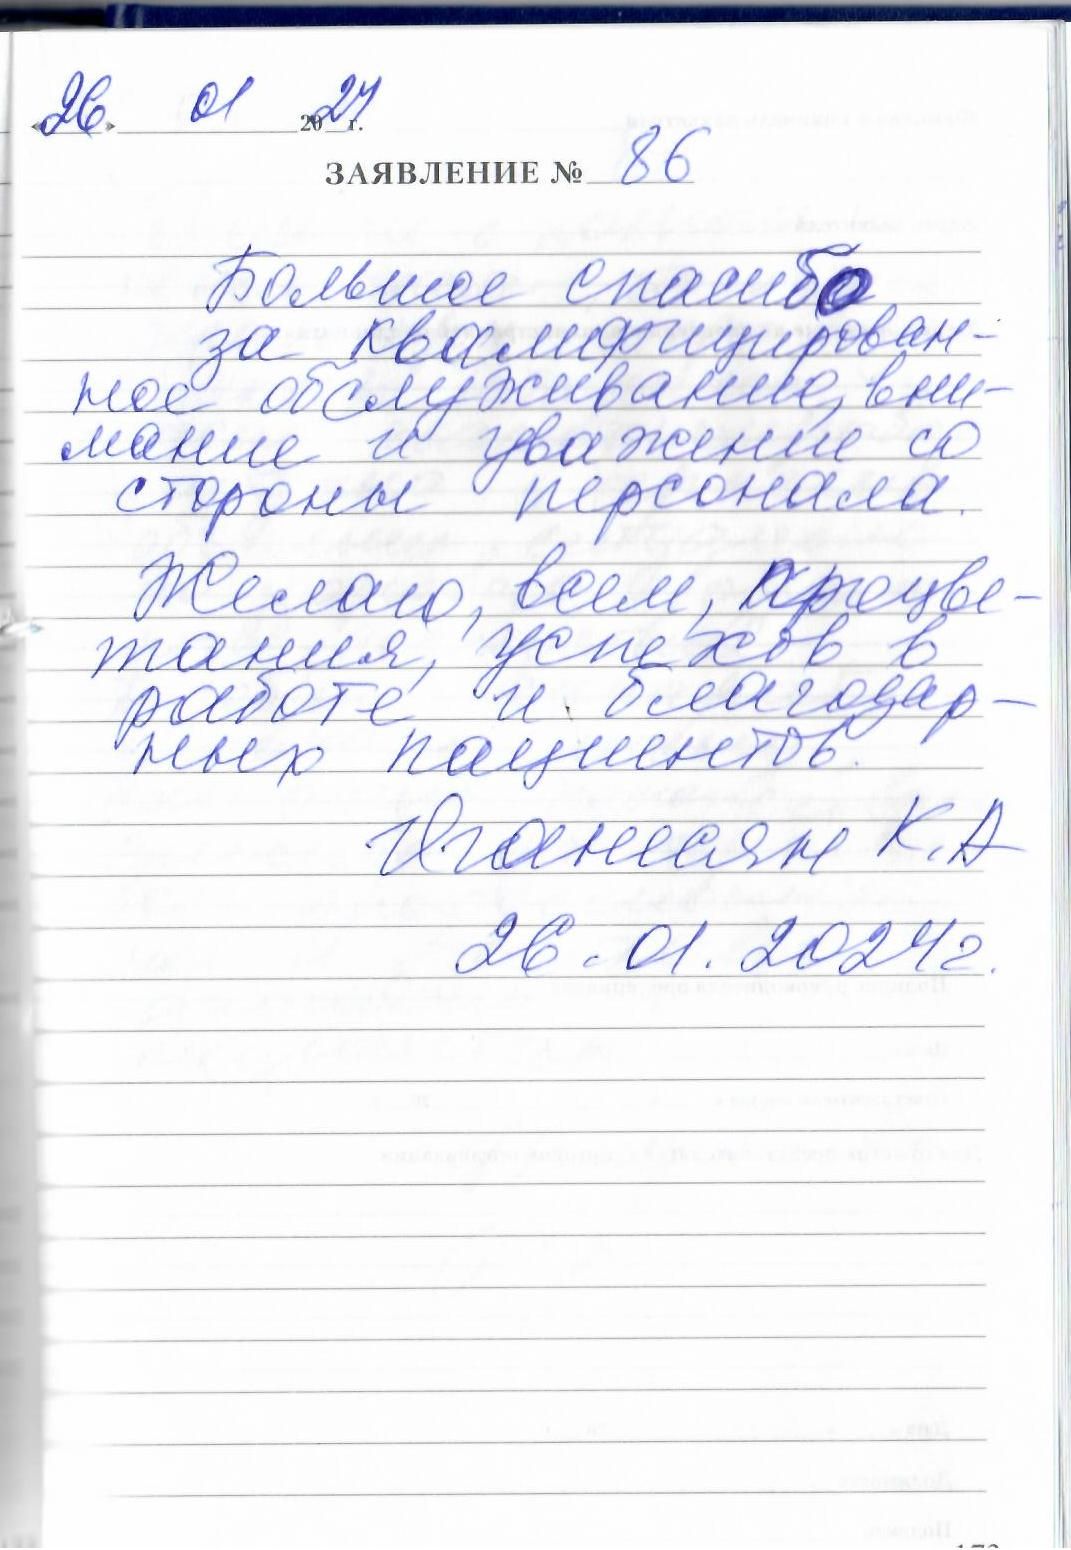 «26» 01 2024 г.
ЗАЯВЛЕНИЕ № 86
Большое спасибо
за квалифицирован-
ное обслуживание, вни-
мание и уважение со
стороны персонала.
Желаю, всем, процве-
тания, успехов в
работе и благодар-
ных пациентов.
Оганесян К.А
26.01.2024г.